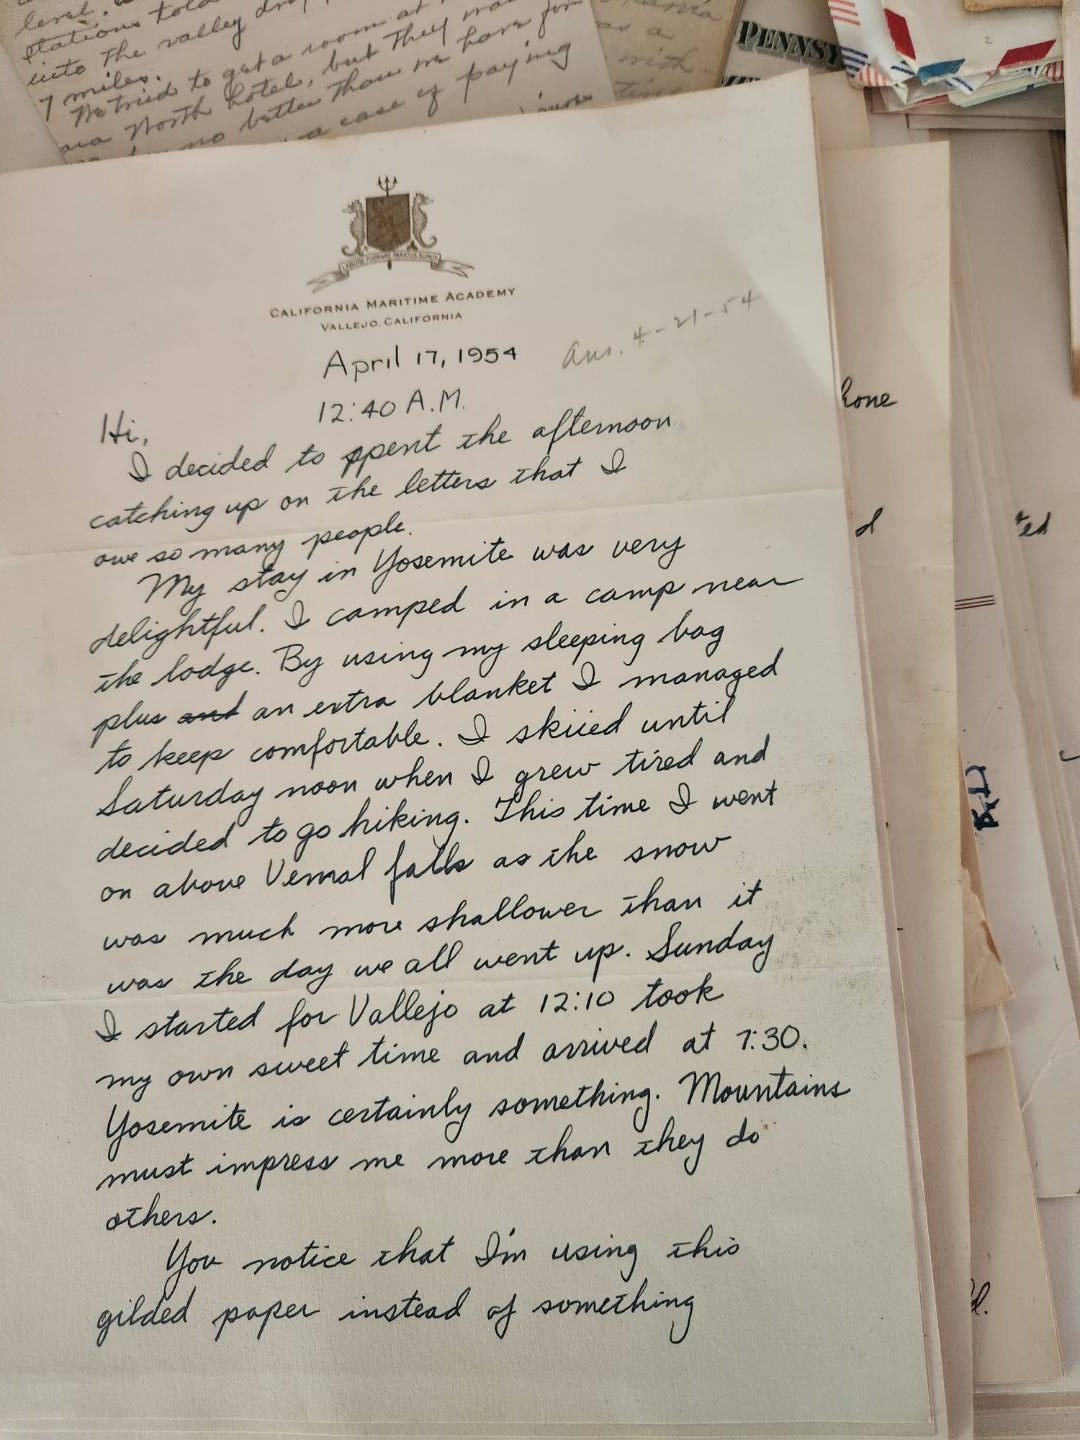 level.
stations told
into the valley
7 miles.
We tried to get a room at
North hotel, but they
no better than we have for
a case of paying
as a
with
PENNSY
CALIFORNIA MARITIME ACADEMY
VALLEJO, CALIFORNIA
April 17, 1954
Ans. 4-21-54
12:40 A.M.
Hi,
I decided to spent the afternoon
catching up on the letters that I
owe so many people.
My stay in Yosemite was very
delightful. I camped in a camp near
the lodge. By using my sleeping bag
plus and an extra blanket I managed
to keep comfortable. I skiied until
Saturday noon when I grew tired and
decided to go hiking. This time I went
on above Vernal falls as the snow
was much more shallower than it
was the day we all went up. Sunday
I started for Vallejo at 12:10 took
my own sweet time and arrived at 7:30.
Yosemite is certainly something. Mountains
must impress me more than they do
others.
You notice that I'm using this
gilded paper instead of something
hone
d
ed